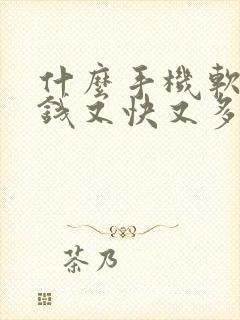 什麼手機軟
錢又快又多
茶乃